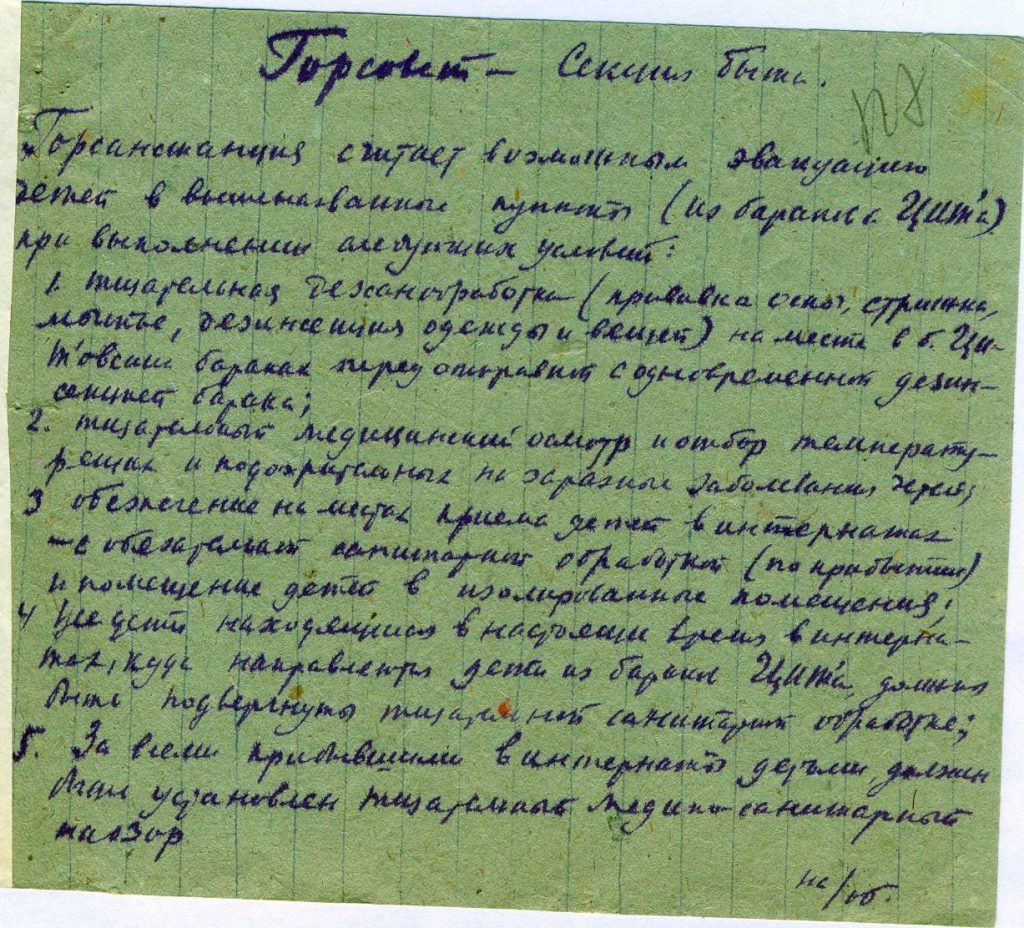 Горсовет — Секция быта.
№8
Горсанстанция считает возможным эвакуацию
детей в вышеназванные пункты (из барака ЦИТ'а)
при выполнении следующих условий:
1. тщательная саннобработка (прививка оспы, стрижка,
мытье, дезинсекция одежды и вещей) на месте в б. Ци-
т'овских бараках перед отправкой с одновременной дезин-
секцией барака;
2. тщательный медицинский осмотр и отбор температу-
рящих и подозрительных на заразные заболевания детей;
3 обеспечение на местах приема детей в интернатах
— с обязательной санитарной обработкой (по прибытии)
и помещение детей в изолированные помещения;
4 Все дети находящиеся в настоящее время в интерна-
тах, куда направляются дети из барака ЦИТ'а, должны
быть подвергнуты тщательной санитарной обработке;
5. За всеми прибывшими в интернаты детьми должен
быть установлен тщательный медико-санитарный
надзор
на/об.